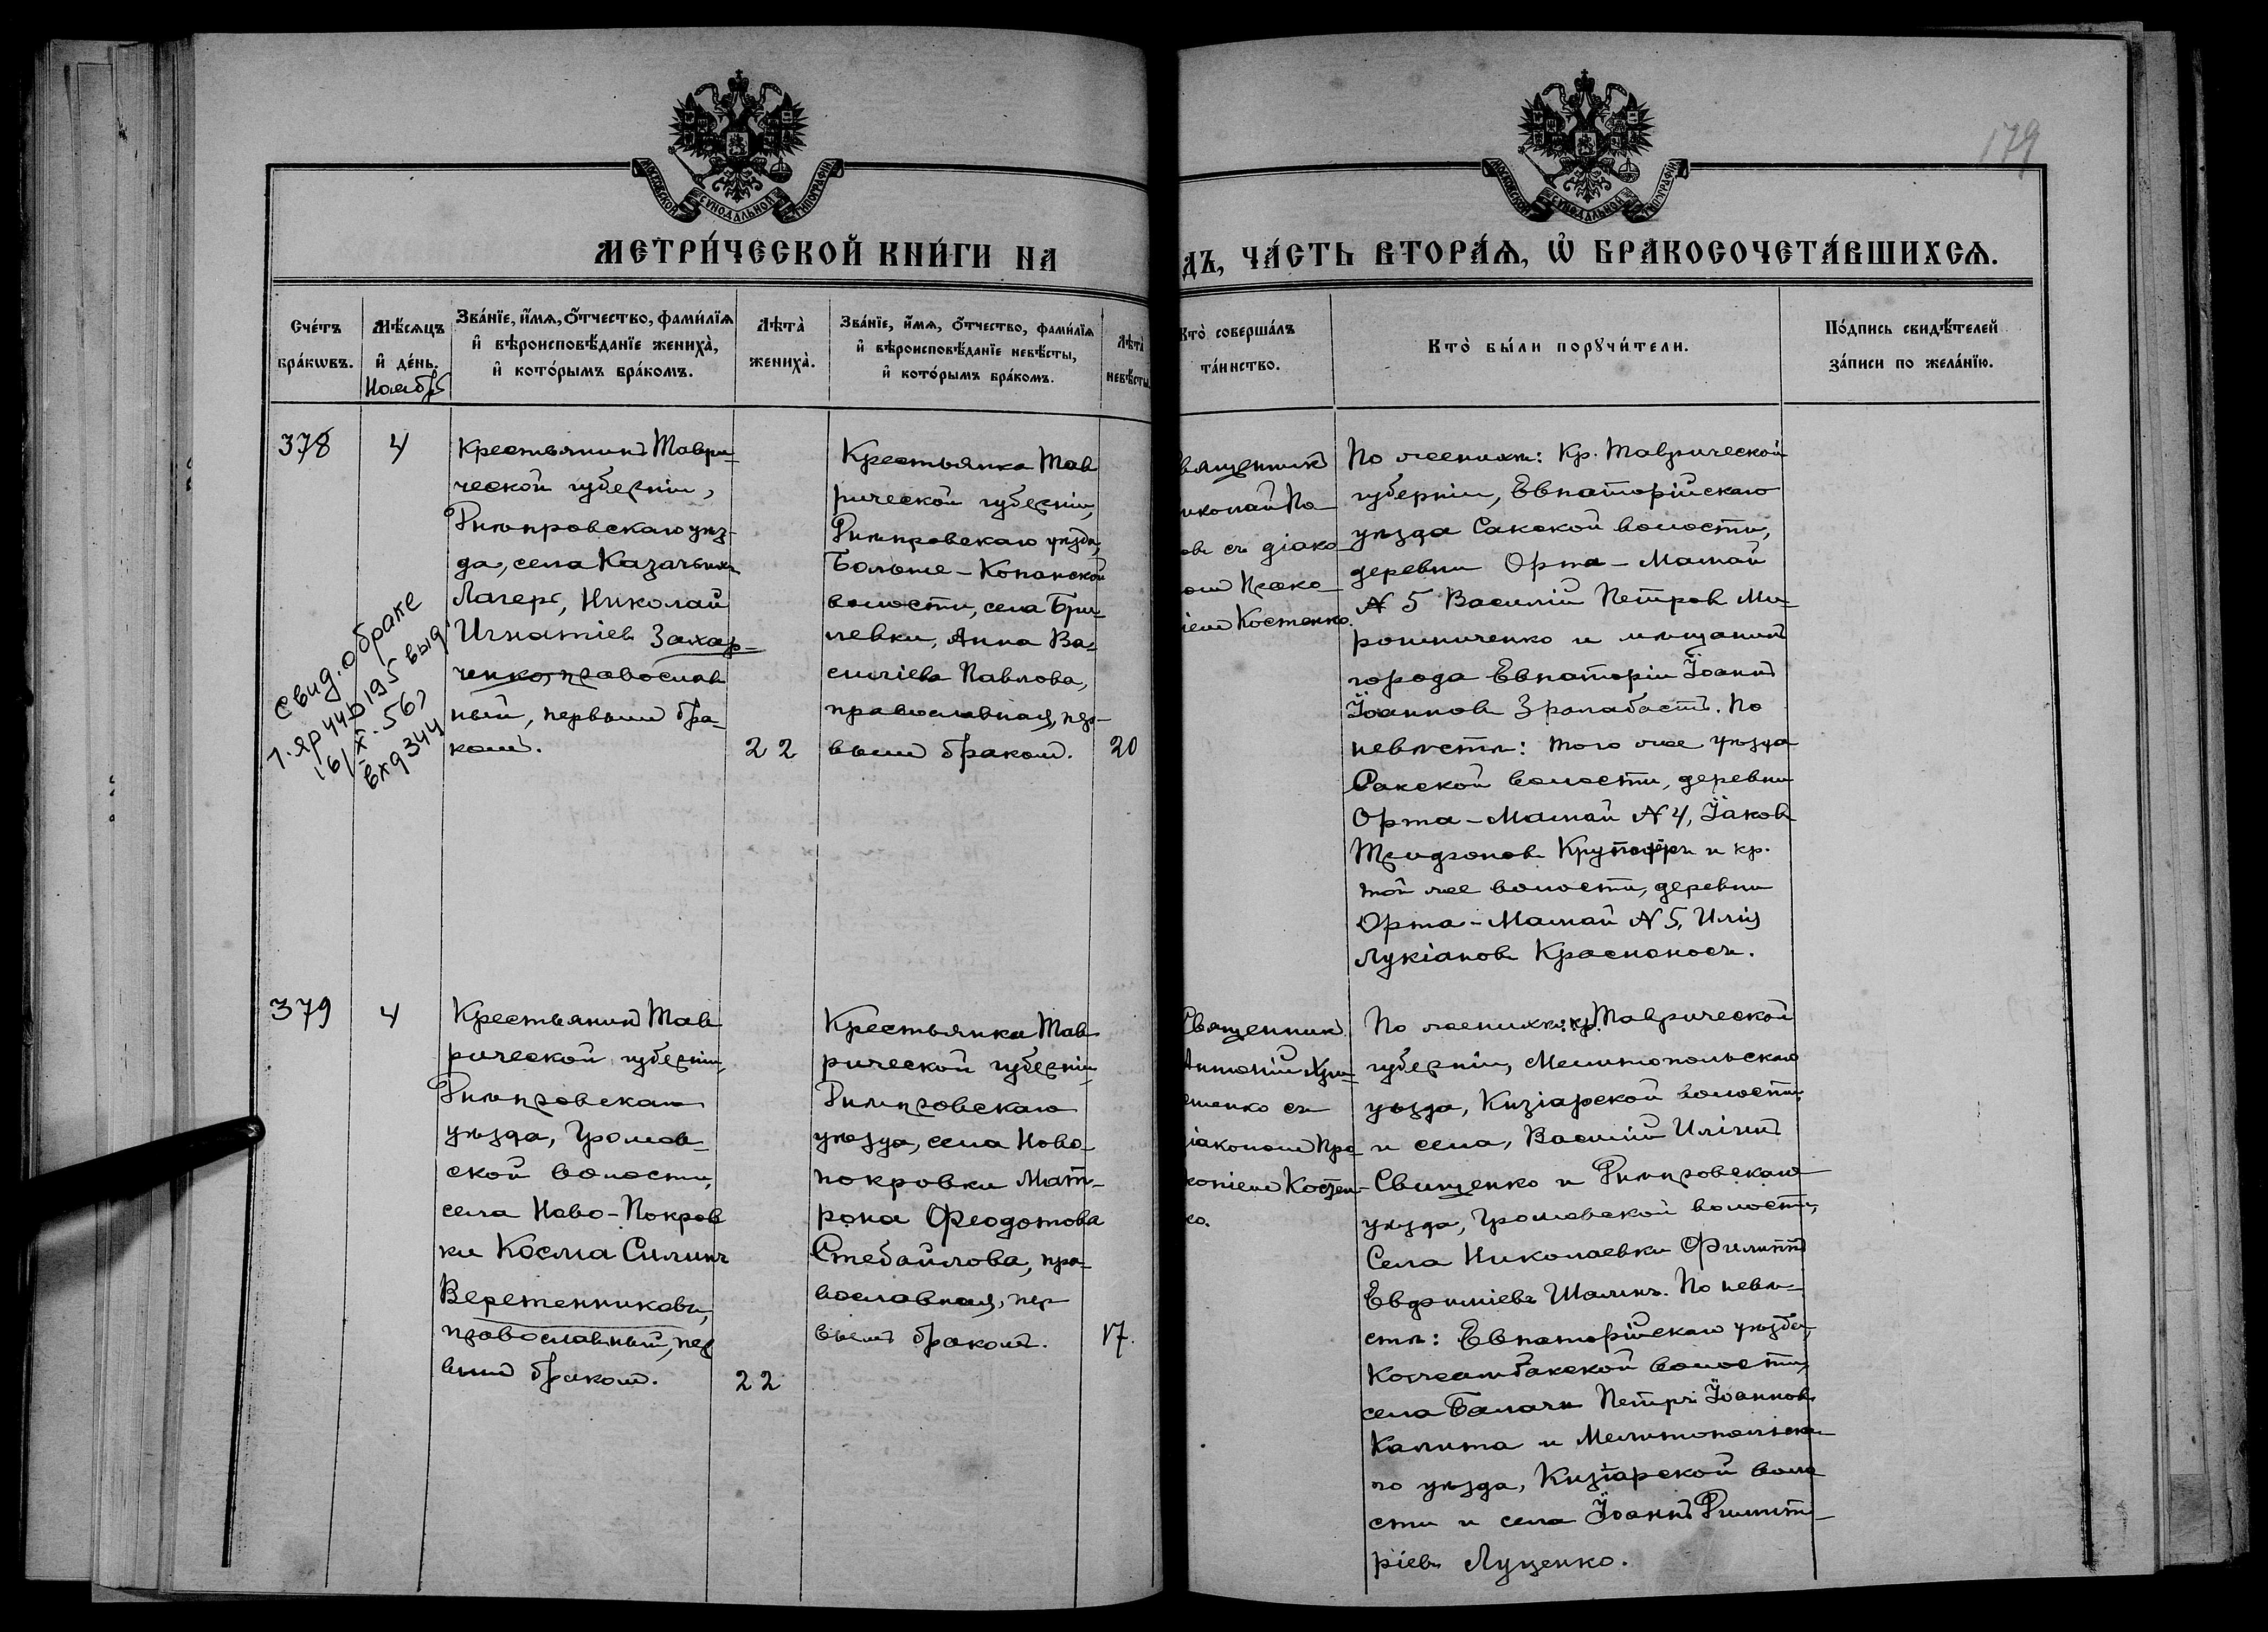 179
МОСКОВСКОЙ СѴНОДАЛЬНОЙ ТИПОГРАФІИ
МОСКОВСКОЙ СѴНОДАЛЬНОЙ ТИПОГРАФІИ
МЕТРИ́ЧЕСКОЙ КНИ́ГИ НА
ДЪ, ЧА́СТЬ ВТОРА́Ѧ, Ѡ҆ БРАКОСОЧЕТА́ВШИХСѦ.
Сче́тъ
бра́кѡвъ.
Мѣ́сѧцъ
и҆ де́нь.
Ноябрь
Зва́нїе, и҆́мѧ, ѻ҆́тчество, фами́лїѧ
и҆ вѣроисповѣ́данїе жениха̀,
и҆ кото́рымъ бра́комъ.
Лѣта̀
жениха̀.
Зва́нїе, и҆́мѧ, ѻ҆́тчество, фами́лїѧ
и҆ вѣроисповѣ́данїе невѣ́сты,
и҆ кото́рымъ бра́комъ.
Лѣта̀
невѣ́сты.
Кто̀ соверша́лъ
та́инство.
Кто̀ бы́ли порꙋчи́тели.
По́дпись свидѣ́телей
за́писи по жела́нїю.
378
4
Крестьянинъ Таври-
ческой губерніи,
Днѣпровскаго уѣз-
да, села Казачьихъ
Лагерь, Николай
Игнатіевъ Захар-
ченко, православ
ный, первымъ бра-
комъ.
22
Крестьянка Тав
рической губерніи,
Днѣпровскаго уѣзда,
Больше-Копанской
волости, села Бри-
левки, Анна Ва-
силіева Павлова,
православная, пер-
вымъ бракомъ.
20
вященникъ
иколай По-
овъ съ діако-
омъ Проко-
іемъ Костенко.
По женихѣ: Кр. Таврической
губерніи, Евпаторійскаго
уѣзда Сакской волости,
деревни Орта-Мамай
№ 5 Василій Петровъ Ми-
рошниченко и мѣщанинъ
города Евпаторіи Іоаннъ
Іоанновъ. По
невѣстѣ: того же уѣзда
Сакской волости, деревни
Орта-Мамай № 4, Іаковъ
и кр.
той же волости, деревни
Орта-Мамай № 5, Илія
Лукіановъ Красноносъ.
Свид. о браке
выд.
вх 9344
379
4
Крестьянинъ Тав
рической губерніи,
Днѣпровскаго
уѣзда, Громов-
ской волости,
села Ново-Покров
ки Косма Силинъ
Веретенниковъ,
православный, пер
вымъ бракомъ.
22
Крестьянка Тав
рической губерніи
Днѣпровскаго
уѣзда, села Ново-
покровки Мат-
рона Ѳеодотова
Стебайлова, пра-
вославная, пер
вымъ бракомъ.
17.
Священникъ
Антоній Хри-
стенко съ
діакономъ Про-
копіемъ Костен-
ко.
По женихѣ: кр. Таврической
губерніи, Мелитопольскаго
уѣзда, Кизіарской волости
и села, Василій Иліинъ
Свищенко и Днѣпровскаго
уѣзда, Громовской волости,
Села Николаевки Филиппъ
Евфиміевъ Шалинъ. По невѣ-
стѣ: Евпаторійскаго уѣзда,
Кожамбакской волости,
села Балачи Петръ Іоанновъ
Калита и Мелитопольска-
го уѣзда, Кизіарской воло
сти и села Іоаннъ Димит-
ріевъ Луценко.